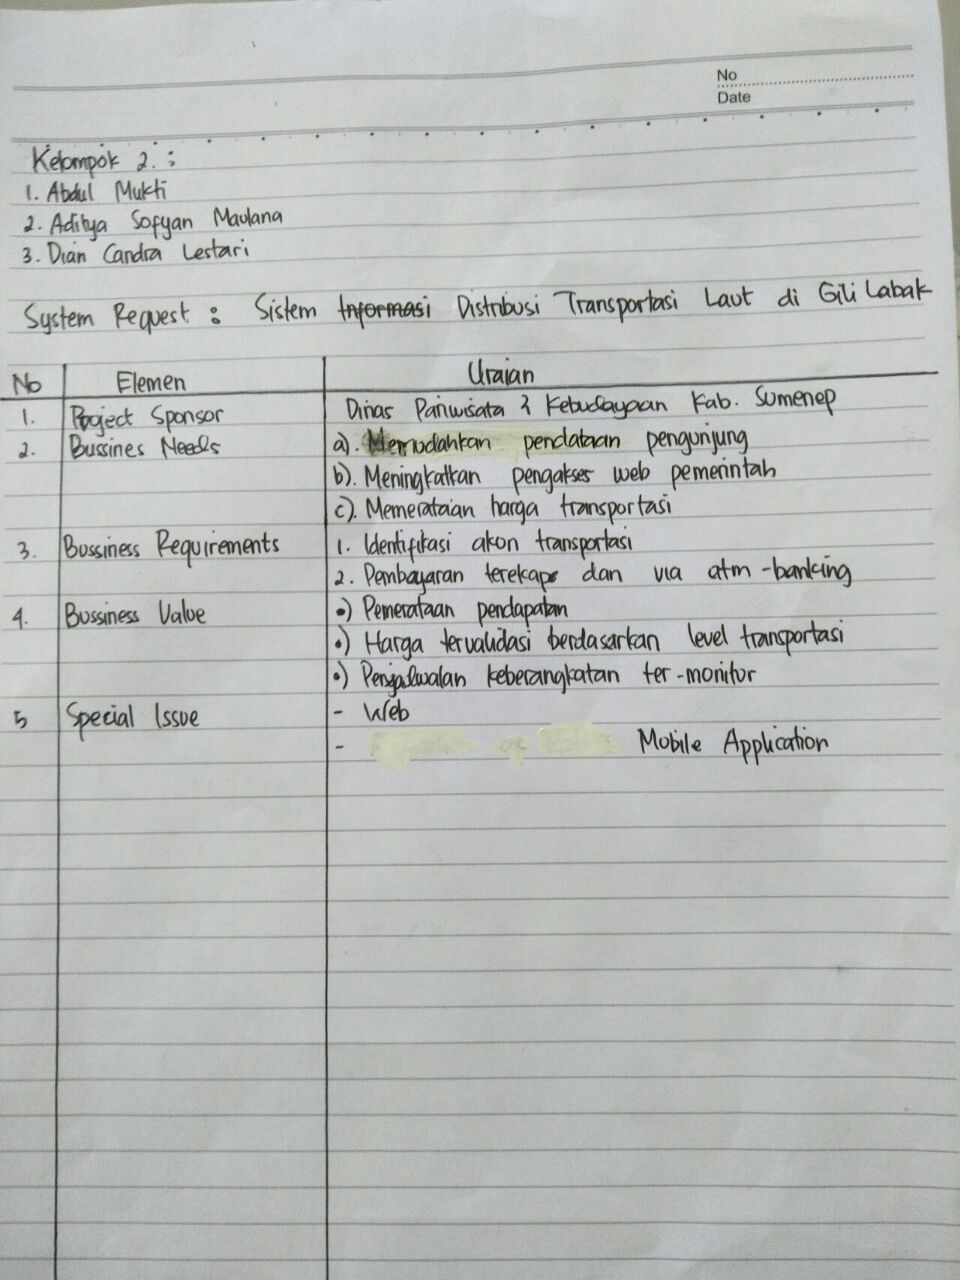 No
Date
Kelompok 2. :
1. Abdul Mukti
2. Aditya Sofyan Maulana
3. Dian Candra Lestari
System Request : Sistem Informasi Distribusi Transportasi Laut di Gili Labak
No Elemen Uraian
1. Project Sponsor Dinas Pariwisata & Kebudayaan Kab. Sumenep
2. Bussines Needs a). Memudahkan pendataan pengunjung
b). Meningkatkan pengakses web pemerintah
c). Memerataian harga transportasi
3. Bussiness Requirements 1. Identifikasi akon transportasi
2. Pembayaran terekap dan via atm-banking
4. Bussiness Value •) Pemerataan pendapatan
•) Harga tervalidasi berdasarkan level transportasi
•) Penjadwalan keberangkatan ter-monitor
5 Special Issue - Web
- Mobile Application